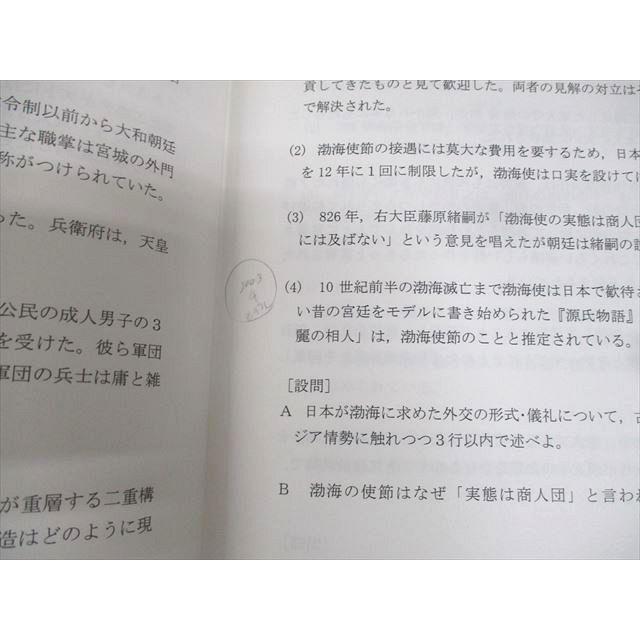 令制以前から大和朝廷
主な職掌は宮城の外門
称がつけられていた。
った。兵衛府は，天皇
公民の成人男子の3
を受けた。彼ら軍団
軍団の兵士は庸と雑
が重層する二重構
造はどのように現
貢してきたものと見て歓迎した。両者の見解の対立は
で解決された。
(2) 渤海使節の接遇には莫大な費用を要するため，日本
を12年に1回に制限したが，渤海使は口実を設けて
(3) 826年，右大臣藤原緒嗣が「渤海使の実態は商人団
には及ばない」という意見を唱えたが朝廷は緒嗣の
(4) 10世紀前半の渤海滅亡まで渤海使は日本で歓待
い昔の宮廷をモデルに書き始められた『源氏物語』
麗の相人」は，渤海使節のことと推定されている。
［設問］
A 日本が渤海に求めた外交の形式・儀礼について，
ジア情勢に触れつつ3行以内で述べよ。
B 渤海の使節はなぜ「実態は商人団」と言わ